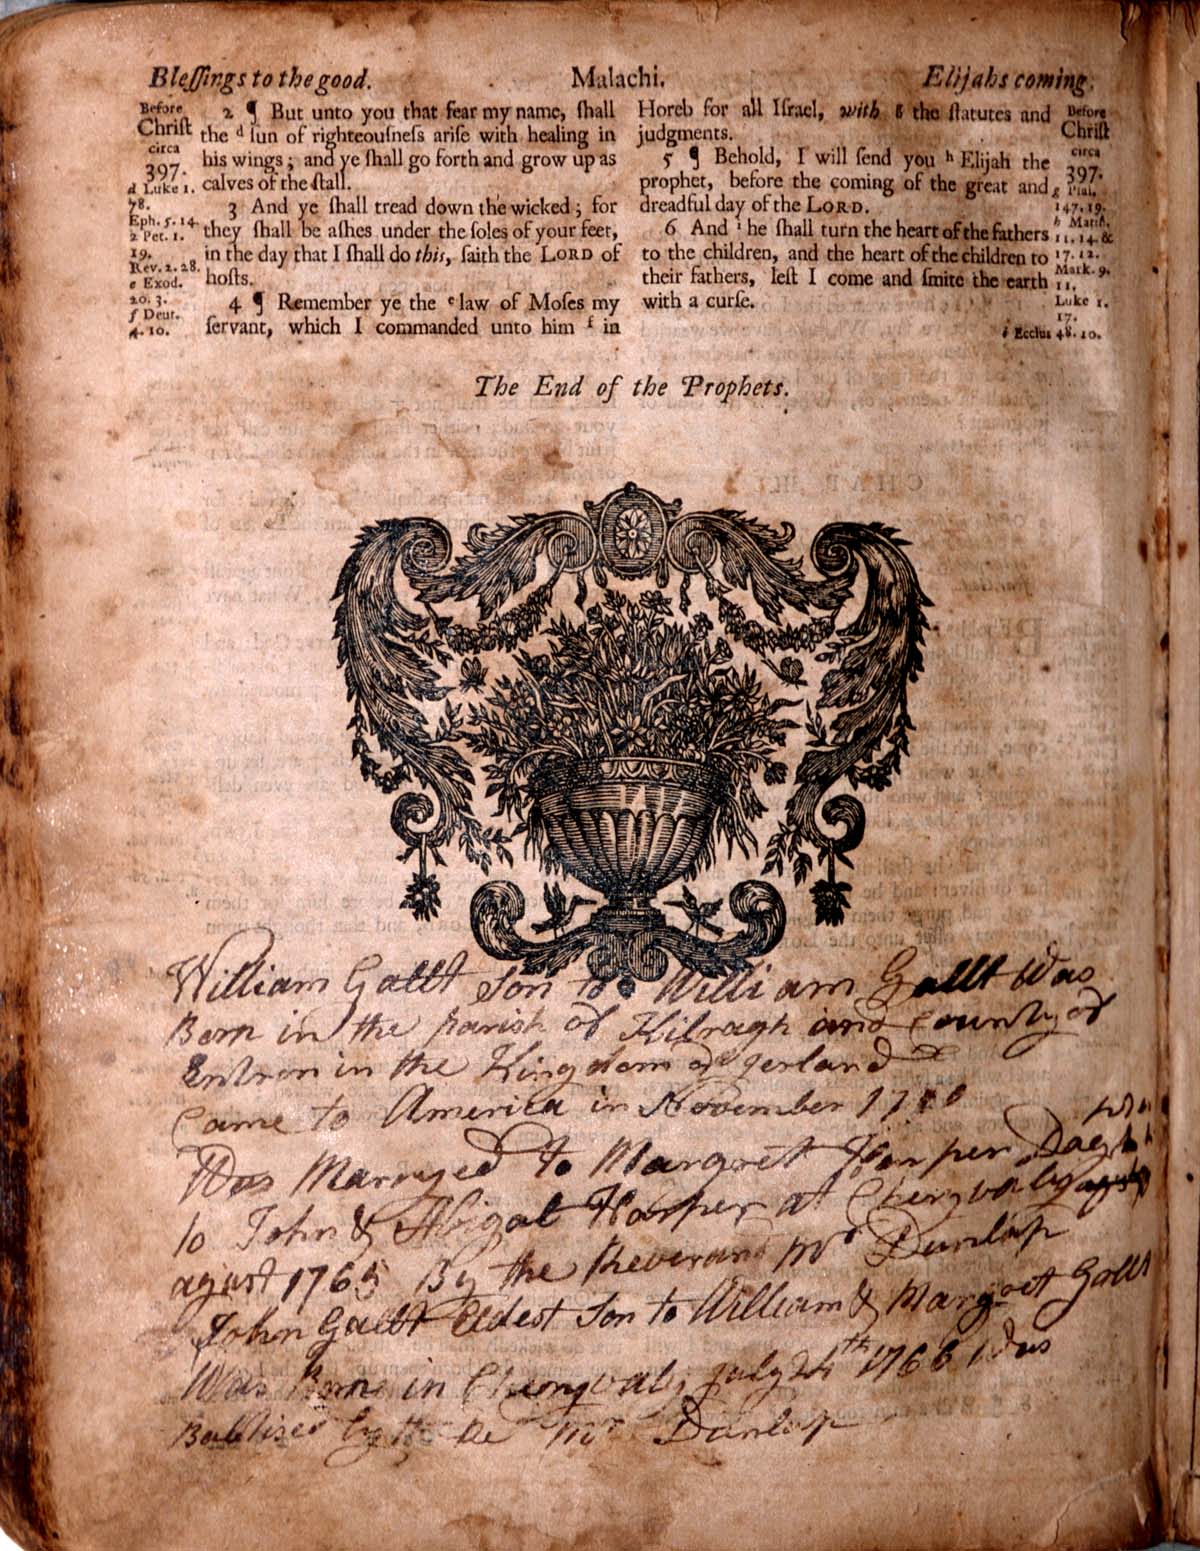 Bleſſings to the good.
Malachi.
Elijahs coming.
Before
Chriſt
circa
397.
d Luke 1.
78.
Eph. 5. 14.
2 Pet. 1.
19.
Rev. 2. 28.
e Exod.
20. 3.
f Deut.
4. 10.
2 ¶ But unto you that fear my name, ſhall
the d ſun of righteouſneſs ariſe with healing in
his wings; and ye ſhall go forth and grow up as
calves of the ſtall.
3 And ye ſhall tread down the wicked; for
they ſhall be aſhes under the ſoles of your feet,
in the day that I ſhall do this, ſaith the LORD of
hoſts.
4 ¶ Remember ye the e law of Moſes my
ſervant, which I commanded unto him f in
Horeb for all Iſrael, with g the ſtatutes and
judgments.
5 ¶ Behold, I will ſend you h Elijah the
prophet, before the coming of the great and
dreadful day of the LORD.
6 And i he ſhall turn the heart of the fathers
to the children, and the heart of the children to
their fathers, leſt I come and ſmite the earth
with a curſe.
Before
Chriſt
circa
397.
g Pſal.
147. 19.
h Matth.
11. 14. &
17. 12.
Mark. 9.
11.
Luke 1.
17.
i Ecclus 48. 10.
The End of the Prophets.
William Gallt Son to William Gallt Was
Born in the parish of Kilragh and County of
Entron in the Kingdom of Jerland
Came to America in November
Was Marryed to Margret Harper
to John & Abigal Harper at Cheryvaly
agust 1765 By the Reverand Mr Dunlap
John Gallt Eldest Son to William & Margret Gallt
Was Born in Cheryvaly july 24th 1766 Was
by the Mr Dunlap